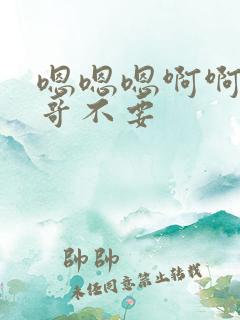 嗯嗯嗯啊啊
哥不要
帥帥
未经同意禁止转载